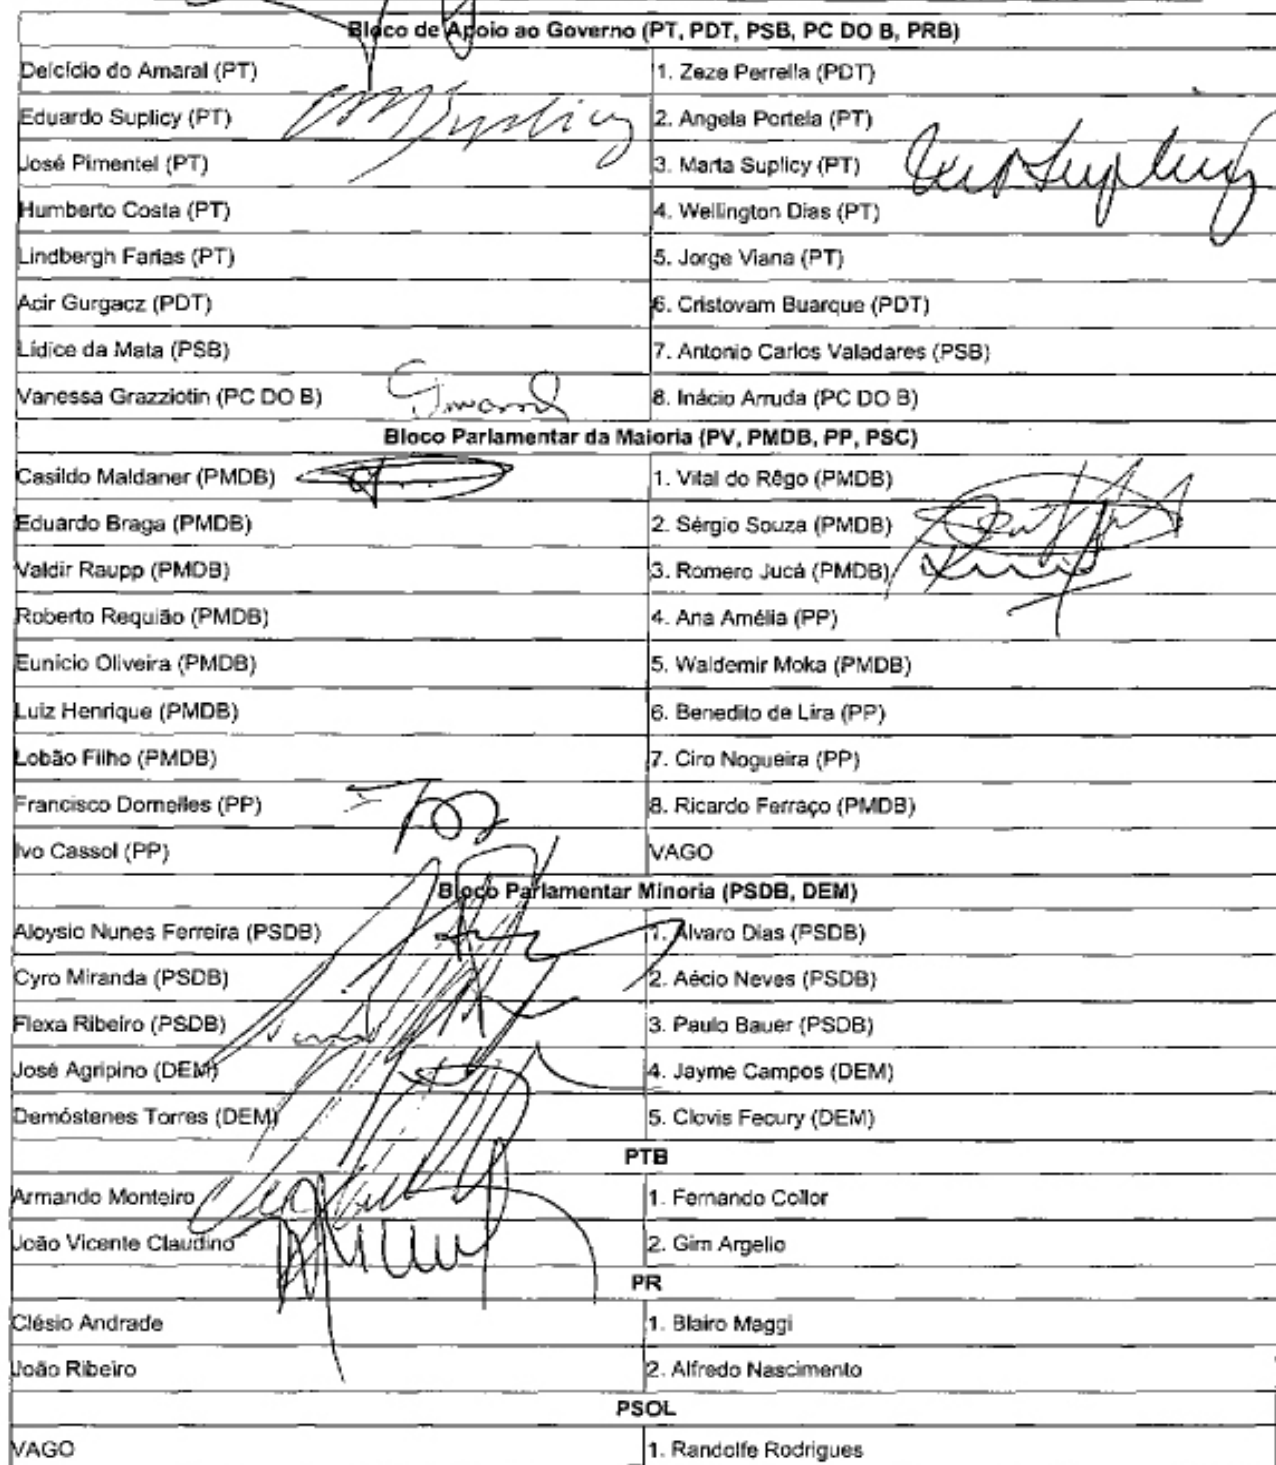 Bloco de Apoio ao Governo (PT, PDT, PSB, PC DO B, PRB)
Delcídio do Amaral (PT) 1. Zeze Perrella (PDT)
Eduardo Suplicy (PT) Suplicy 2. Angela Portela (PT)
José Pimentel (PT) 3. Marta Suplicy (PT) Suplicy
Humberto Costa (PT) 4. Wellington Dias (PT)
Lindbergh Farias (PT) 5. Jorge Viana (PT)
Acir Gurgacz (PDT) 6. Cristovam Buarque (PDT)
Lídice da Mata (PSB) 7. Antonio Carlos Valadares (PSB)
Vanessa Grazziotin (PC DO B) 8. Inácio Arruda (PC DO B)
Bloco Parlamentar da Maioria (PV, PMDB, PP, PSC)
Casildo Maldaner (PMDB) 1. Vital do Rêgo (PMDB)
Eduardo Braga (PMDB) 2. Sérgio Souza (PMDB)
Valdir Raupp (PMDB) 3. Romero Jucá (PMDB)
Roberto Requião (PMDB) 4. Ana Amélia (PP)
Eunício Oliveira (PMDB) 5. Waldemir Moka (PMDB)
Luiz Henrique (PMDB) 6. Benedito de Lira (PP)
Lobão Filho (PMDB) 7. Ciro Nogueira (PP)
Francisco Dornelles (PP) 8. Ricardo Ferraço (PMDB)
Ivo Cassol (PP) VAGO
Bloco Parlamentar Minoria (PSDB, DEM)
Aloysio Nunes Ferreira (PSDB) 1. Alvaro Dias (PSDB)
Cyro Miranda (PSDB) 2. Aécio Neves (PSDB)
Flexa Ribeiro (PSDB) 3. Paulo Bauer (PSDB)
José Agripino (DEM) 4. Jayme Campos (DEM)
Demóstenes Torres (DEM) 5. Clovis Fecury (DEM)
PTB
Armando Monteiro 1. Fernando Collor
João Vicente Claudino 2. Gim Argello
PR
Clésio Andrade 1. Blairo Maggi
João Ribeiro 2. Alfredo Nascimento
PSOL
VAGO 1. Randolfe Rodrigues